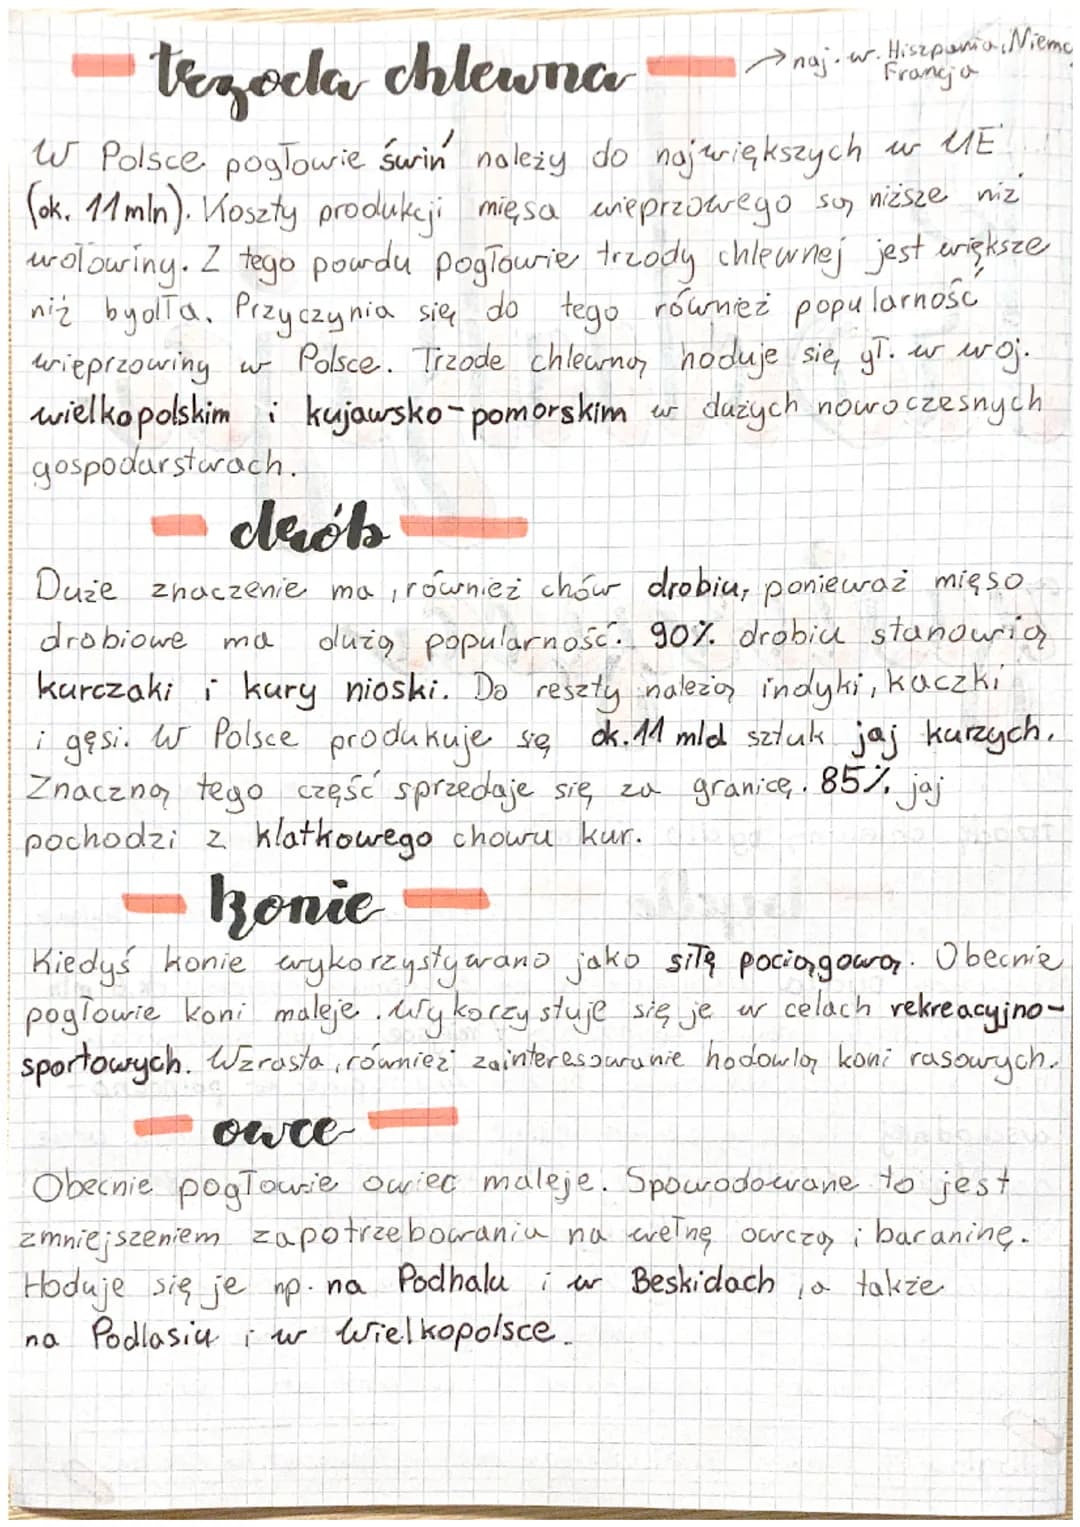 trzoda chlewna
→ naj. w. Hiszpania, Niemc
Francja
W Polsce pogłowie świń należy do największych w UE
(ok. 11 mln). Koszty produkcji mięsa wieprzowego są niższe niż
wołowiny. Z tego powdu pogłowie trzody chlewnej jest większe
niż bydła. Przyczynia się do tego również popularność
wieprzowiny w Polsce. Trzode chlewną hoduje się gł. w woj.
wielkopolskim i kujawsko-pomorskim w dużych nowoczesnych
gospodarstwach.
drób
Duże znaczenie ma również chów drobiu, ponieważ mięso
drobiowe ma dużą popularność. 90% drobiu stanowią
kurczaki i kury nioski. Do reszty należą indyki, kaczki
i gęsi. W Polsce produkuje się ok. 11 mld sztuk jaj kurzych.
Znaczną tego część sprzedaje się za granicę. 85% jaj
pochodzi z klatkowego chowu kur.
konie
Kiedyś konie wykorzystywano jako siłę pociągową. Obecnie
pogłowie koni maleje. Wykorzystuje się je w celach rekreacyjno-
sportowych. Wzrasta również zainteresowanie hodowlą koni rasowych.
owce
Obecnie pogłowie owiec maleje. Spowodowane to jest
zmniejszeniem zapotrzebowania na wełnę owczą i baraninę.
Hoduje się je np. na Podhalu i w Beskidach, a także
na Podlasiu i w Wielkopolsce.